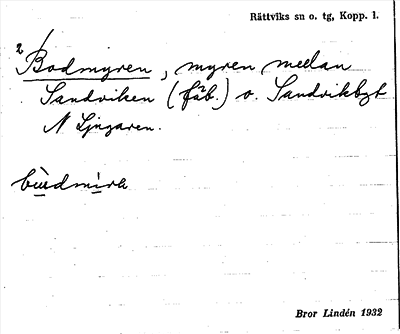 Rättviks sn o. tg, Kopp. l.
2 Bodmyren, myren mellan
Sandviken (fäb.) o. Sandviksbyt
N Ljugaren.
Bror Lindén 1932